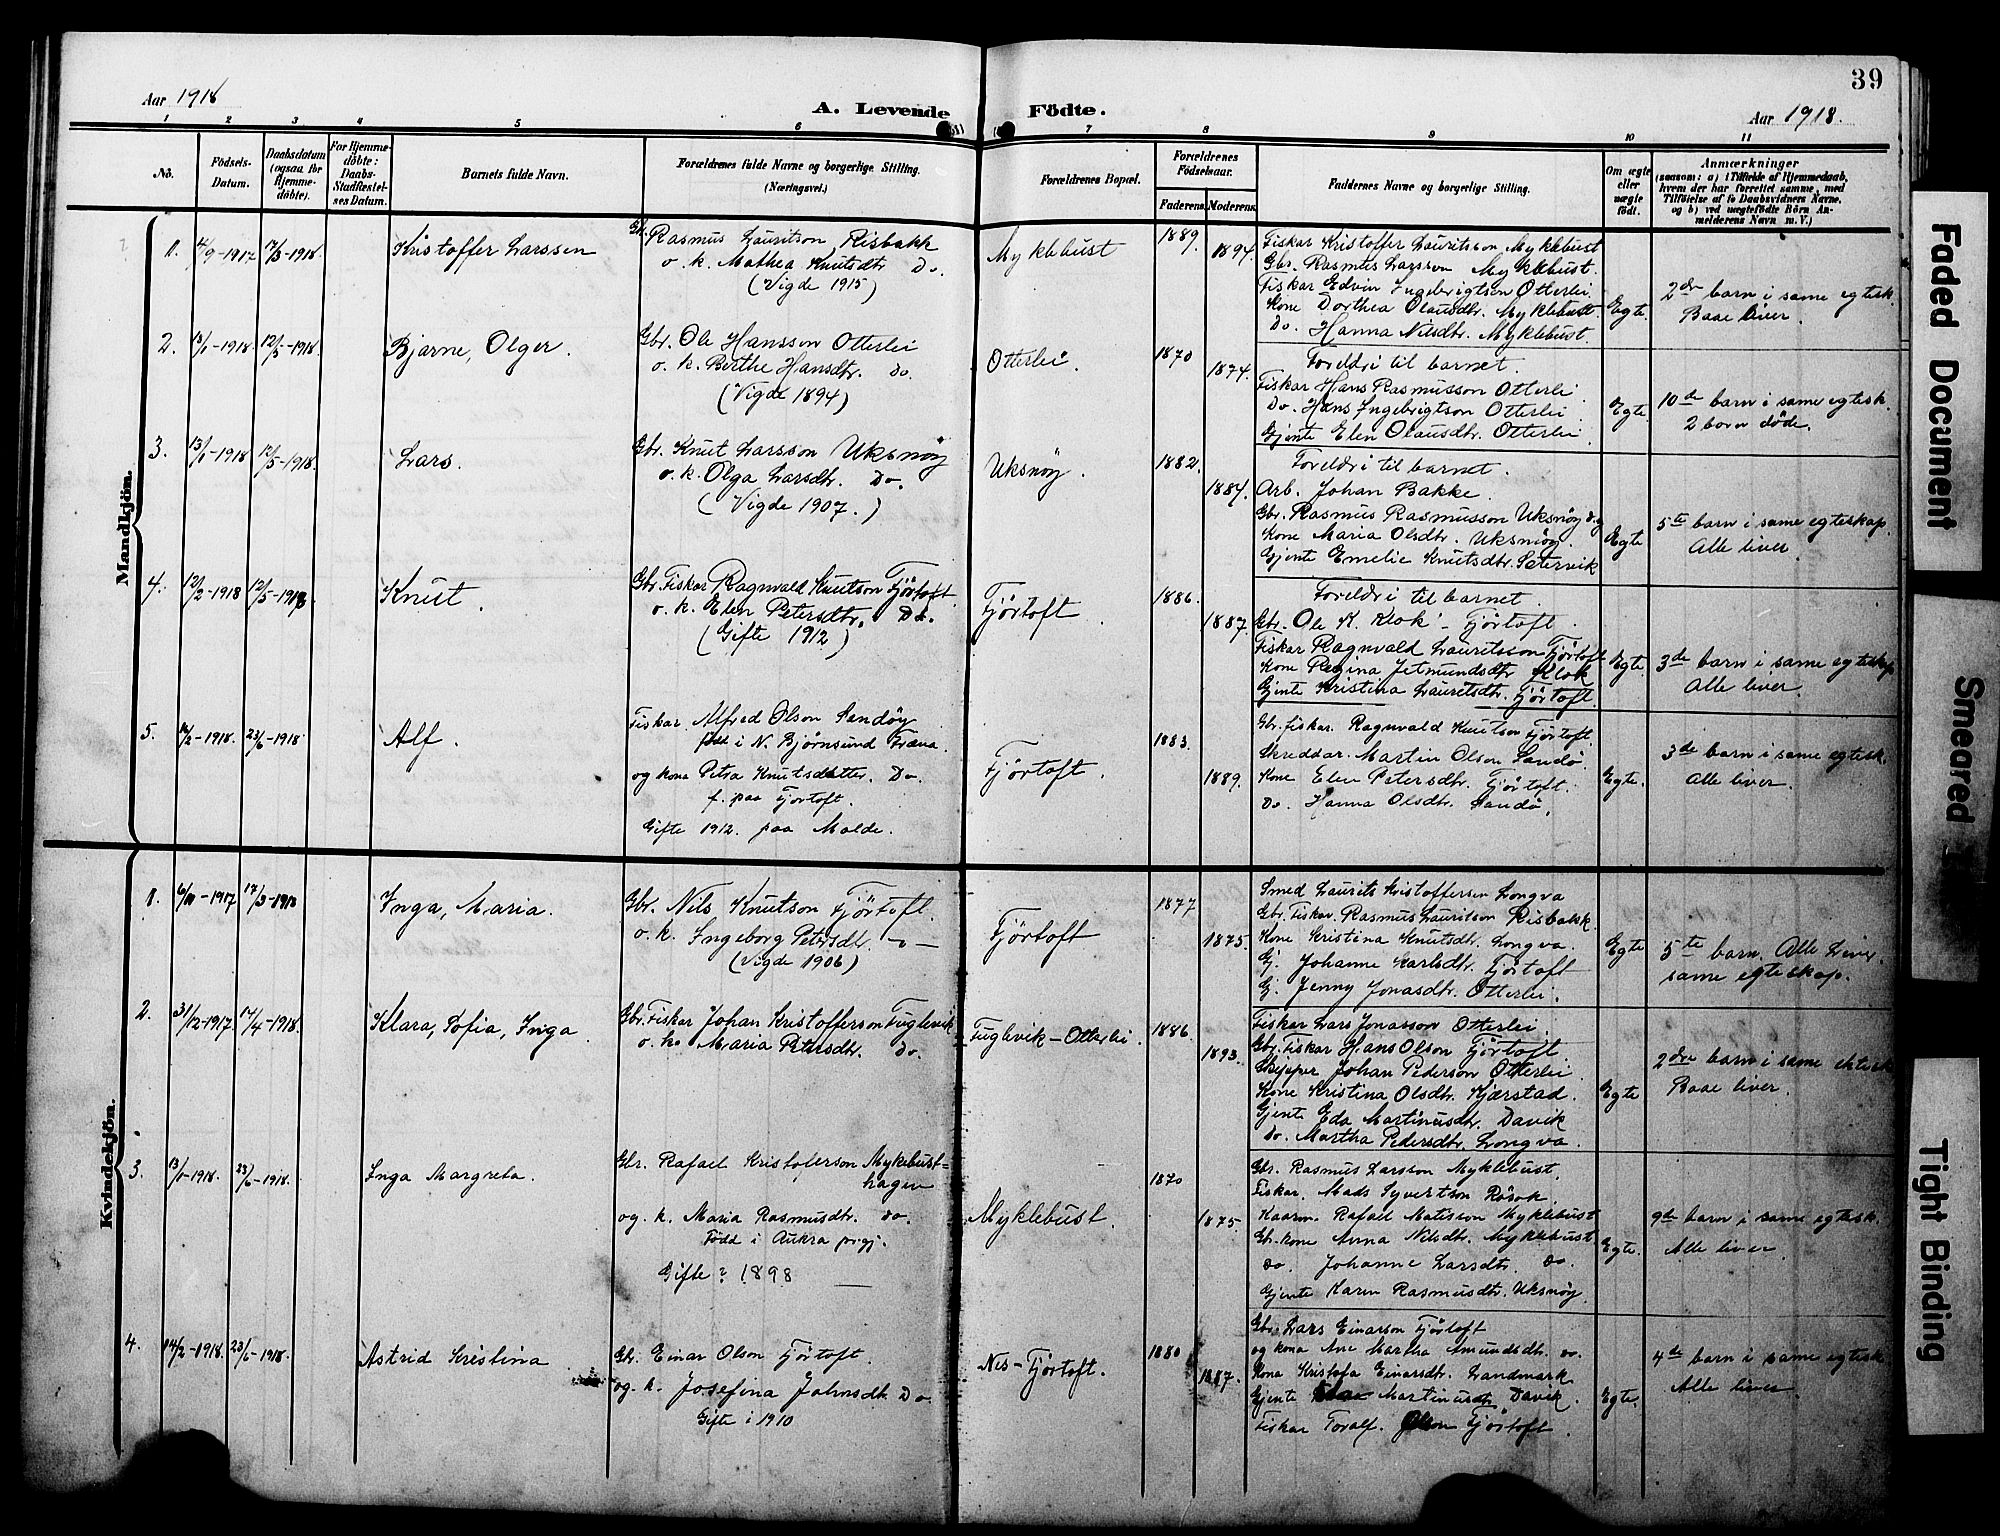 39
Aar 1918
A. Levende Födte.
Aar 1918.
1 2 3 4 5 6 7 8 9 10 11
No.
Födsels-Datum.
Daabsdatum (ogsaa for Hjemmedöbte).
For Hjemmedöbte: Daabs-Stadfæstelses Datum.
Barnets fulde Navn.
Forældrenes fulde Navne og borgerlige Stilling. (Næringsvei.)
Forældrenes Bopæl.
Forældrenes Födselsaar.
Faderens. Moderens.
Faddernes Navne og borgerlige Stilling.
Om ægte eller uægte födt.
Anmærkninger
(saasom: a) i Tilfælde af Hjemmedaab,
hvem der har forrettet samme, med
Tilföielse af to Daabsvidners Navne,
og b) ved uægtefödte Börn An-
melderens Navn m. V.)
Mandkjön.
1. 4/9-1917 17/3-1918 Kristoffer Larssen
Gb. Rasmus Lauritson Risbakk
o. k. Mathea Knutsdtr Do.
(Vigde 1915)
Myklebust
1889. 1894.
Fiskar Kristoffer Lauritsson Myklebust
Gbr. Rasmus Larsson Myklebust.
Fiskar Edvin Ingebrigtson Otterlei
Kone Dorthea Olausdtr. Myklebust.
Do. Hanna Nilsdtr. Myklebust.
Egte.
2den barn i same egtesk.
Baae liver.
2. 13/1-1918 12/5-1918 Bjarne, Olger.
Gbr. Ole Hansson Otterlei
o. k. Berthe Hansdtr. Do.
(Vigde 1894)
Otterlei
1870 1874.
Foreldri til barnet.
Fiskar Hans Rasmusson Otterlei
Do. Hans Ingebrigtson Otterlei
Gjente Elen Olausdtr. Otterlei.
Egte
10de barn i same egtesk.
2 born döde.
3. 13/1-1918 12/5-1918. Lars.
Gbr. Knut Larsson Uksnöy
o. k. Olga Larsdtr. Do.
(Vigde 1907.)
Uksnöy.
1882. 1884.
Foreldri til barnet.
Arb. Johan Bakke.
Gbr. Rasmus Rasmusson Uksnöy og
Kone Maria Olsdtr. Uksnöy.
Gjente Emelie Knutsdtr. Setervik
Egte
5te barn i same egteskap.
Alle liver.
4. 12/2-1918 12/5-1918 Knut.
Gbr. Fiskar Ragnvald Knutson Fjörtoft.
o. k. Elen Petersdtr. Do.
(Gifte 1912)
Fjörtoft.
1886. 1887.
Foreldri til barnet.
Gbr. Ole K. Klok - Fjörtoft.
Fiskar Ragnvald Lauritsson Fjörtoft
Kone Regina Jetmundsdtr Klok
Gjente Kristina Lauritsdtr. Fjörtoft.
Egte
3de barn i same egteskap
Alle liver.
5. 2-1918. 23/6-1918 Alf.
Fiskar. Alfred Olson Sandöy
född i N. Björnsund Fræna
og kona Petra Knutsdatter. Do.
f. paa Fjörtoft.
Gifte 1912. paa Molde.
Fjörtoft.
1883. 1889.
Gbr. Fiskar. Ragnvald Knutson Fjörtoft
Skreddar. Martin Olson Sandö.
Kone Elen Petersdtr. Fjörtoft.
Do. Hanna Olsdtr. Sandö
Egte.
3de barn i same egtesk.
Alle liver.
Kvindekjön.
1. 6/11-1917 17/3-1918 Inga, Maria.
Gbr. Nils Knutson Fjörtoft.
o. k. Ingeborg Petersdtr. -o-
(Vigde 1906)
Fjörtoft
1877 1875.
Smed Laurits Kristoffersen Longva
Gbr. Fiskar. Rasmus Lauritson Risbakk.
Kone Kristina Knutsdtr. Longva.
Gj. Johanne Karlsdtr. Fjörtoft
Gj. Jenny Jonasdtr. Otterlei.
Egte
5te barn. Alle Liver.
same egteskap.
2. 31/12-1917 17/4-1918. Klara, Sofia, Inga.
Gbr. Fiskar Johan Kristofferson Fuglevik
o. k. Maria Petersdtr. Do.
Fuglevik-Otterlei
1886. 1893.
Fiskar Lars Jonasson Otterlei.
Gbr. Fiskar Hans Olson Fjörtoft.
Skipper Johan Pederson Otterlei.
Kone Kristina Olsdtr. Kjærstad.
Gjente Eda Martinusdtr. Davik
Do. Martha Pedersdtr. Longva.
Egte
2dre barn i same ektesk
Baae liver.
3. 13/1-1918. 23/6-1918. Inga Margreta.
Gbr. Rafael Kristoferson Myklebust-
hagen
og. k. Maria Rasmusdtr. do.
Född i Aukra prgj.
Gifte? 1898
Myklebust.
1870 1875.
Gbr. Rasmus Larsson Myklebust.
Fiskar. Mads Syvertson Rösok.
Kaarm. Rafael Matisson Myklebust
Gb. kone Anna Nilsdtr. Myklebust
do. Johanne Larsdtr. Do.
Gjente Karen Rasmusdtr. Uksnöy
Egte.
9de barn i same egtesk.
Alle liver.
4. 14/2-1918. 23/6-1918. Astrid Kristina
Gb. Einar Olson Fjörtoft.
og. k. Josefina Johnsdtr. Do.
Gifte i 1910
Nes-Fjörtoft.
1880 1887.
Gbr. Lars Einarson Fjörtoft
og kona Ane Martha Amundsdtr. do.
Kona Kristofa Einarsdtr. Landmark
Gjente Martinusdtr. Davik.
Fiskar Toralf. Olson Fjörtoft.
Egte.
4de barn i same egtesk.
Alle liver.
Faded Document
Smeared
Tight Binding